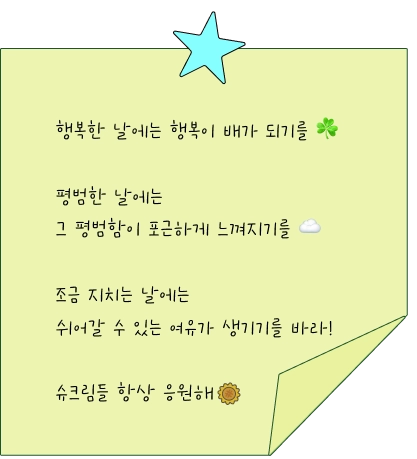 행복한 날에는 행복이 배가 되기를 ☘️
평범한 날에는
그 평범함이 포근하게 느껴지기를 ☁️
조금 지치는 날에는
쉬어갈 수 있는 여유가 생기기를 바라!
슈크림들 항상 응원해🌻